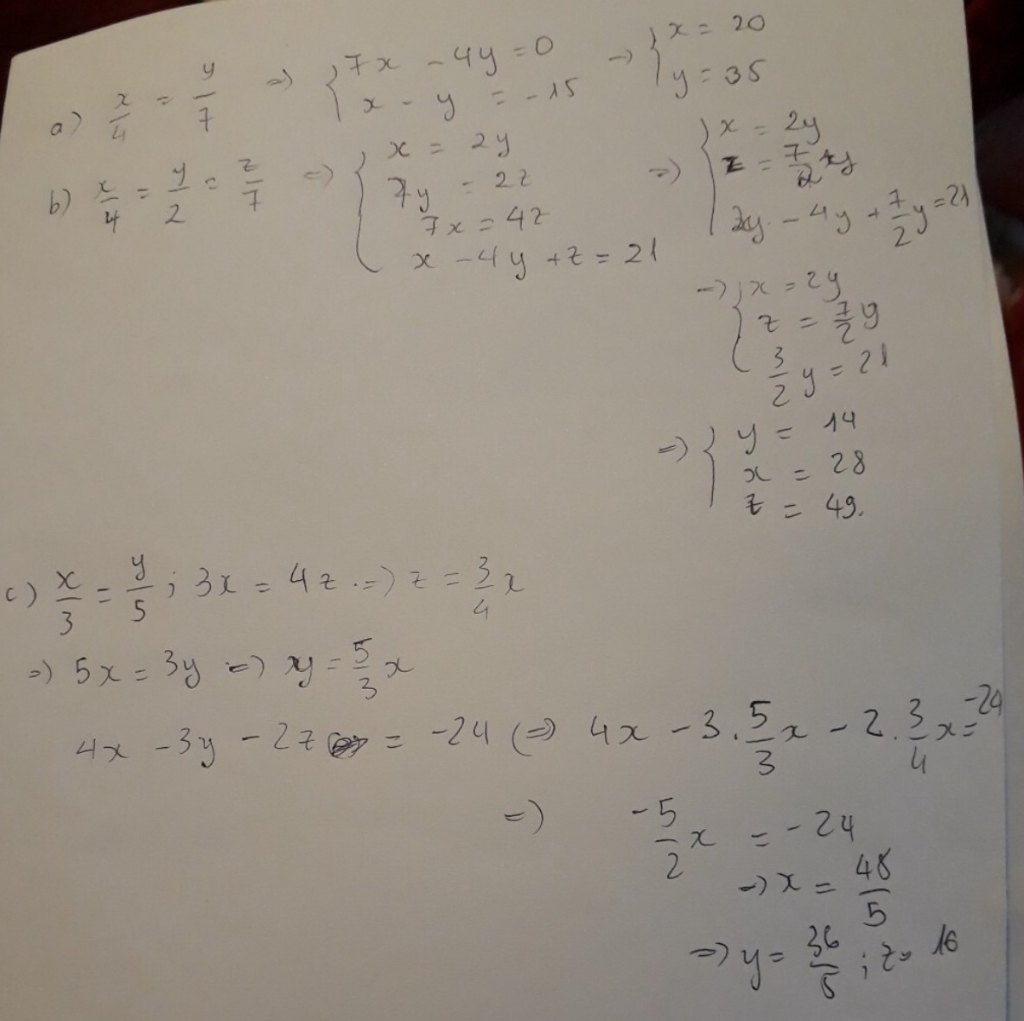 a) x/4 = y/7 => { 7x - 4y = 0 -> { x = 20
x - y = -15 y = 35
b) x/4 = y/2 = z/7 => { x = 2y => { x = 2y
7y = 2z z = 7/2 y
7x = 4z 2y - 4y + 7/2 y = 21
x - 4y + z = 21
-> { x = 2y
z = 7/2 y
3/2 y = 21
=> { y = 14
x = 28
z = 49.
c) x/3 = y/5 ; 3x = 4z => z = 3/4 x
=> 5x = 3y => y = 5/3 x
4x - 3y - 2z = -24 (=> 4x - 3 . 5/3 x - 2 . 3/4 x = -24
=> -5/2 x = -24
-> x = 48/5
=> y = 36/5 ; z = 16